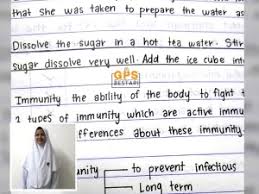 that She was taken to prepare the water as
Dissolve the sugar in a hot tea water. Stir
sugar dissolve very well. Add the ice cube into
GPS
BESTARI
Immunity the ability of the body to fight t
2 types of immunity which are active immu
ifferences about these immunity.
unity → to prevent infectious
Long term